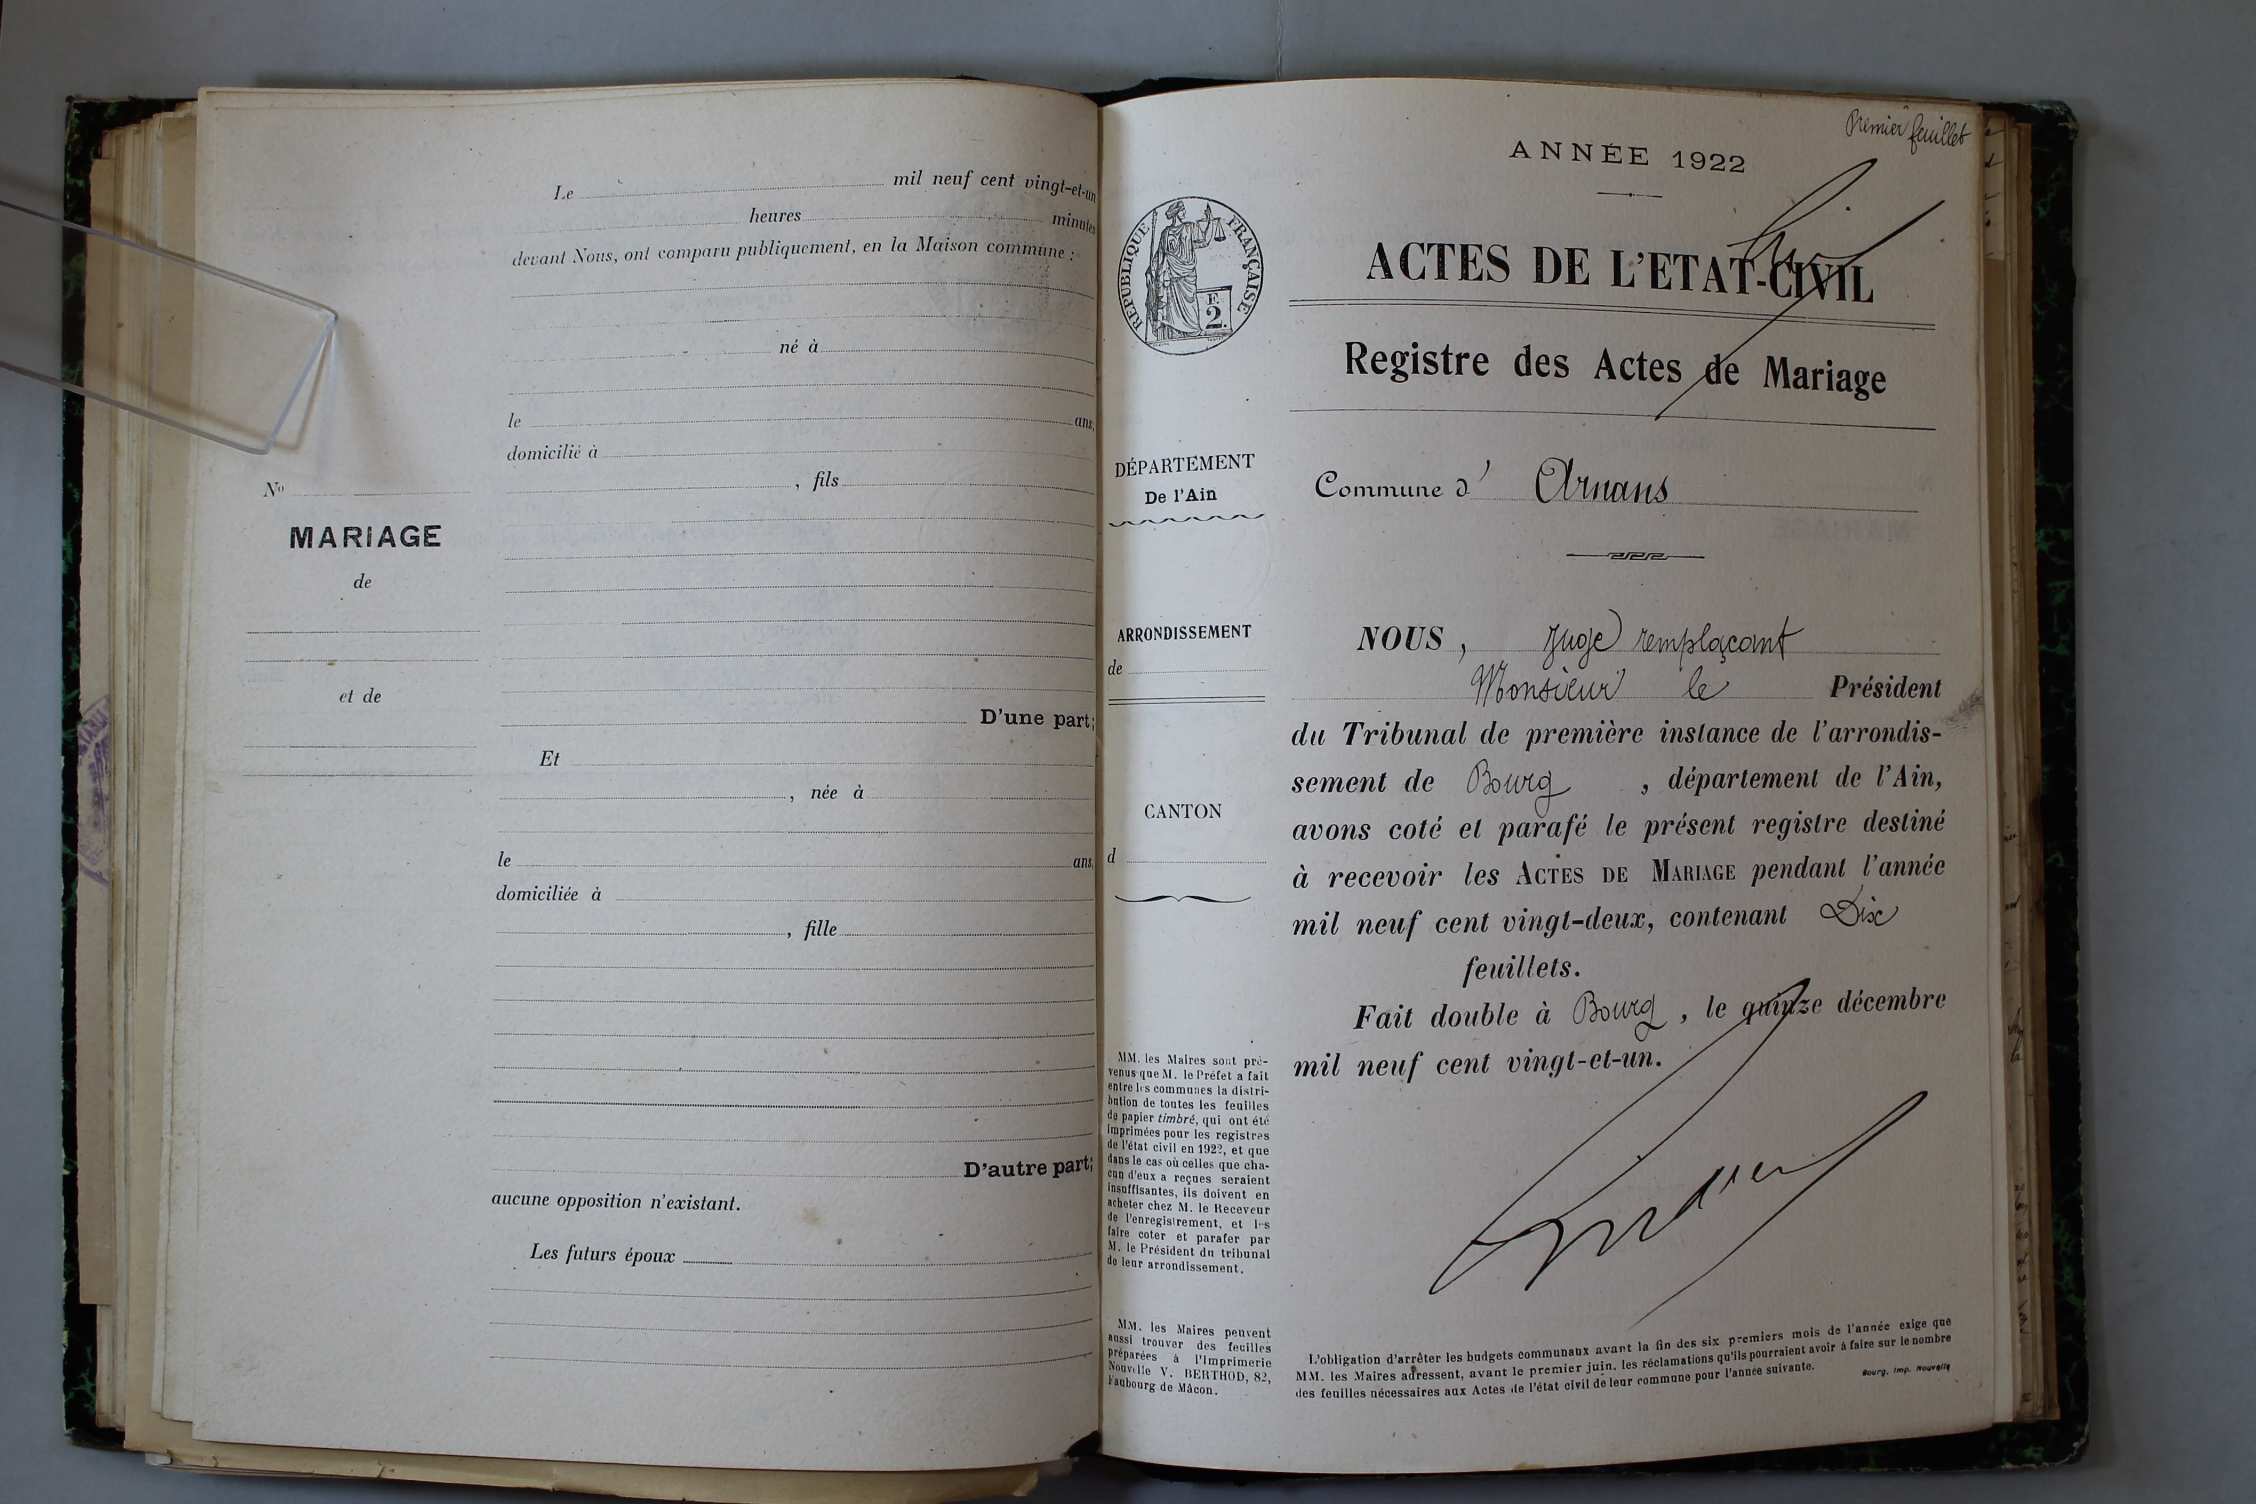 Le mil neuf cent vingt-et-un
heures minutes
devant Nous, ont comparu publiquement, en la Maison commune :
né à
le ans,
domicilié à
, fils
No
MARIAGE
de
et de
D'une part;
Et
, née à
le ans,
domiciliée à
, fille
D'autre part;
aucune opposition n'existant.
Les futurs époux
Premier feuillet
ANNÉE 1922
RÉPUBLIQUE FRANÇAISE
E
2.
ACTES DE L'ETAT-CIVIL
Registre des Actes de Mariage
DÉPARTEMENT
De l'Ain
ARRONDISSEMENT
de
CANTON
d
MM. les Maires sont pré-
venus que M. le Préfet a fait
entre les communes la distri-
bution de toutes les feuilles
de papier timbré, qui ont été
imprimées pour les registres
de l'état civil en 1922, et que
dans le cas où celles que cha-
cun d'eux a reçues seraient
insuffisantes, ils doivent en
acheter chez M. le Receveur
de l'enregistrement, et les
faire coter et parafer par
M. le Président du tribunal
de leur arrondissement.
MM. les Maires peuvent
aussi trouver des feuilles
préparées à l'Imprimerie
Nouvelle V. BERTHOD, 82,
Faubourg de Mâcon.
Commune d' Arnans
NOUS, Juge remplaçant
Monsieur le Président
du Tribunal de première instance de l'arrondis-
sement de Bourg , département de l'Ain,
avons coté et parafé le présent registre destiné
à recevoir les ACTES DE MARIAGE pendant l'année
mil neuf cent vingt-deux, contenant Dix
feuillets.
Fait double à Bourg , le quinze décembre
mil neuf cent vingt-et-un.
L'obligation d'arrêter les budgets communaux avant la fin des six premiers mois de l'année exige que
MM. les Maires adressent, avant le premier juin, les réclamations qu'ils pourraient avoir à faire sur le nombre
des feuilles nécessaires aux Actes de l'état civil de leur commune pour l'année suivante.
Bourg, Imp. Nouvelle